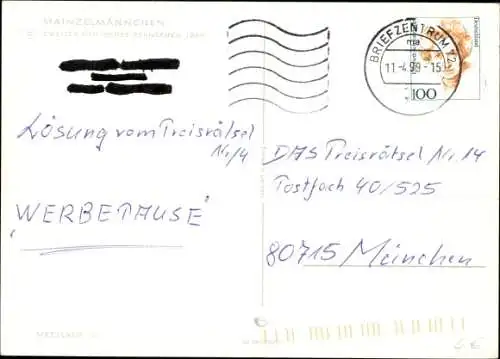 MAINZELMÄNNCHEN
Lösung vom Preisrätsel
Nr. 14
"WERBEPAUSE"
BRIEFZENTRUM 12
11-4.99-15
100
DAS Preisrätsel Nr. 14
Postfach 40/525
80715 Meinchen